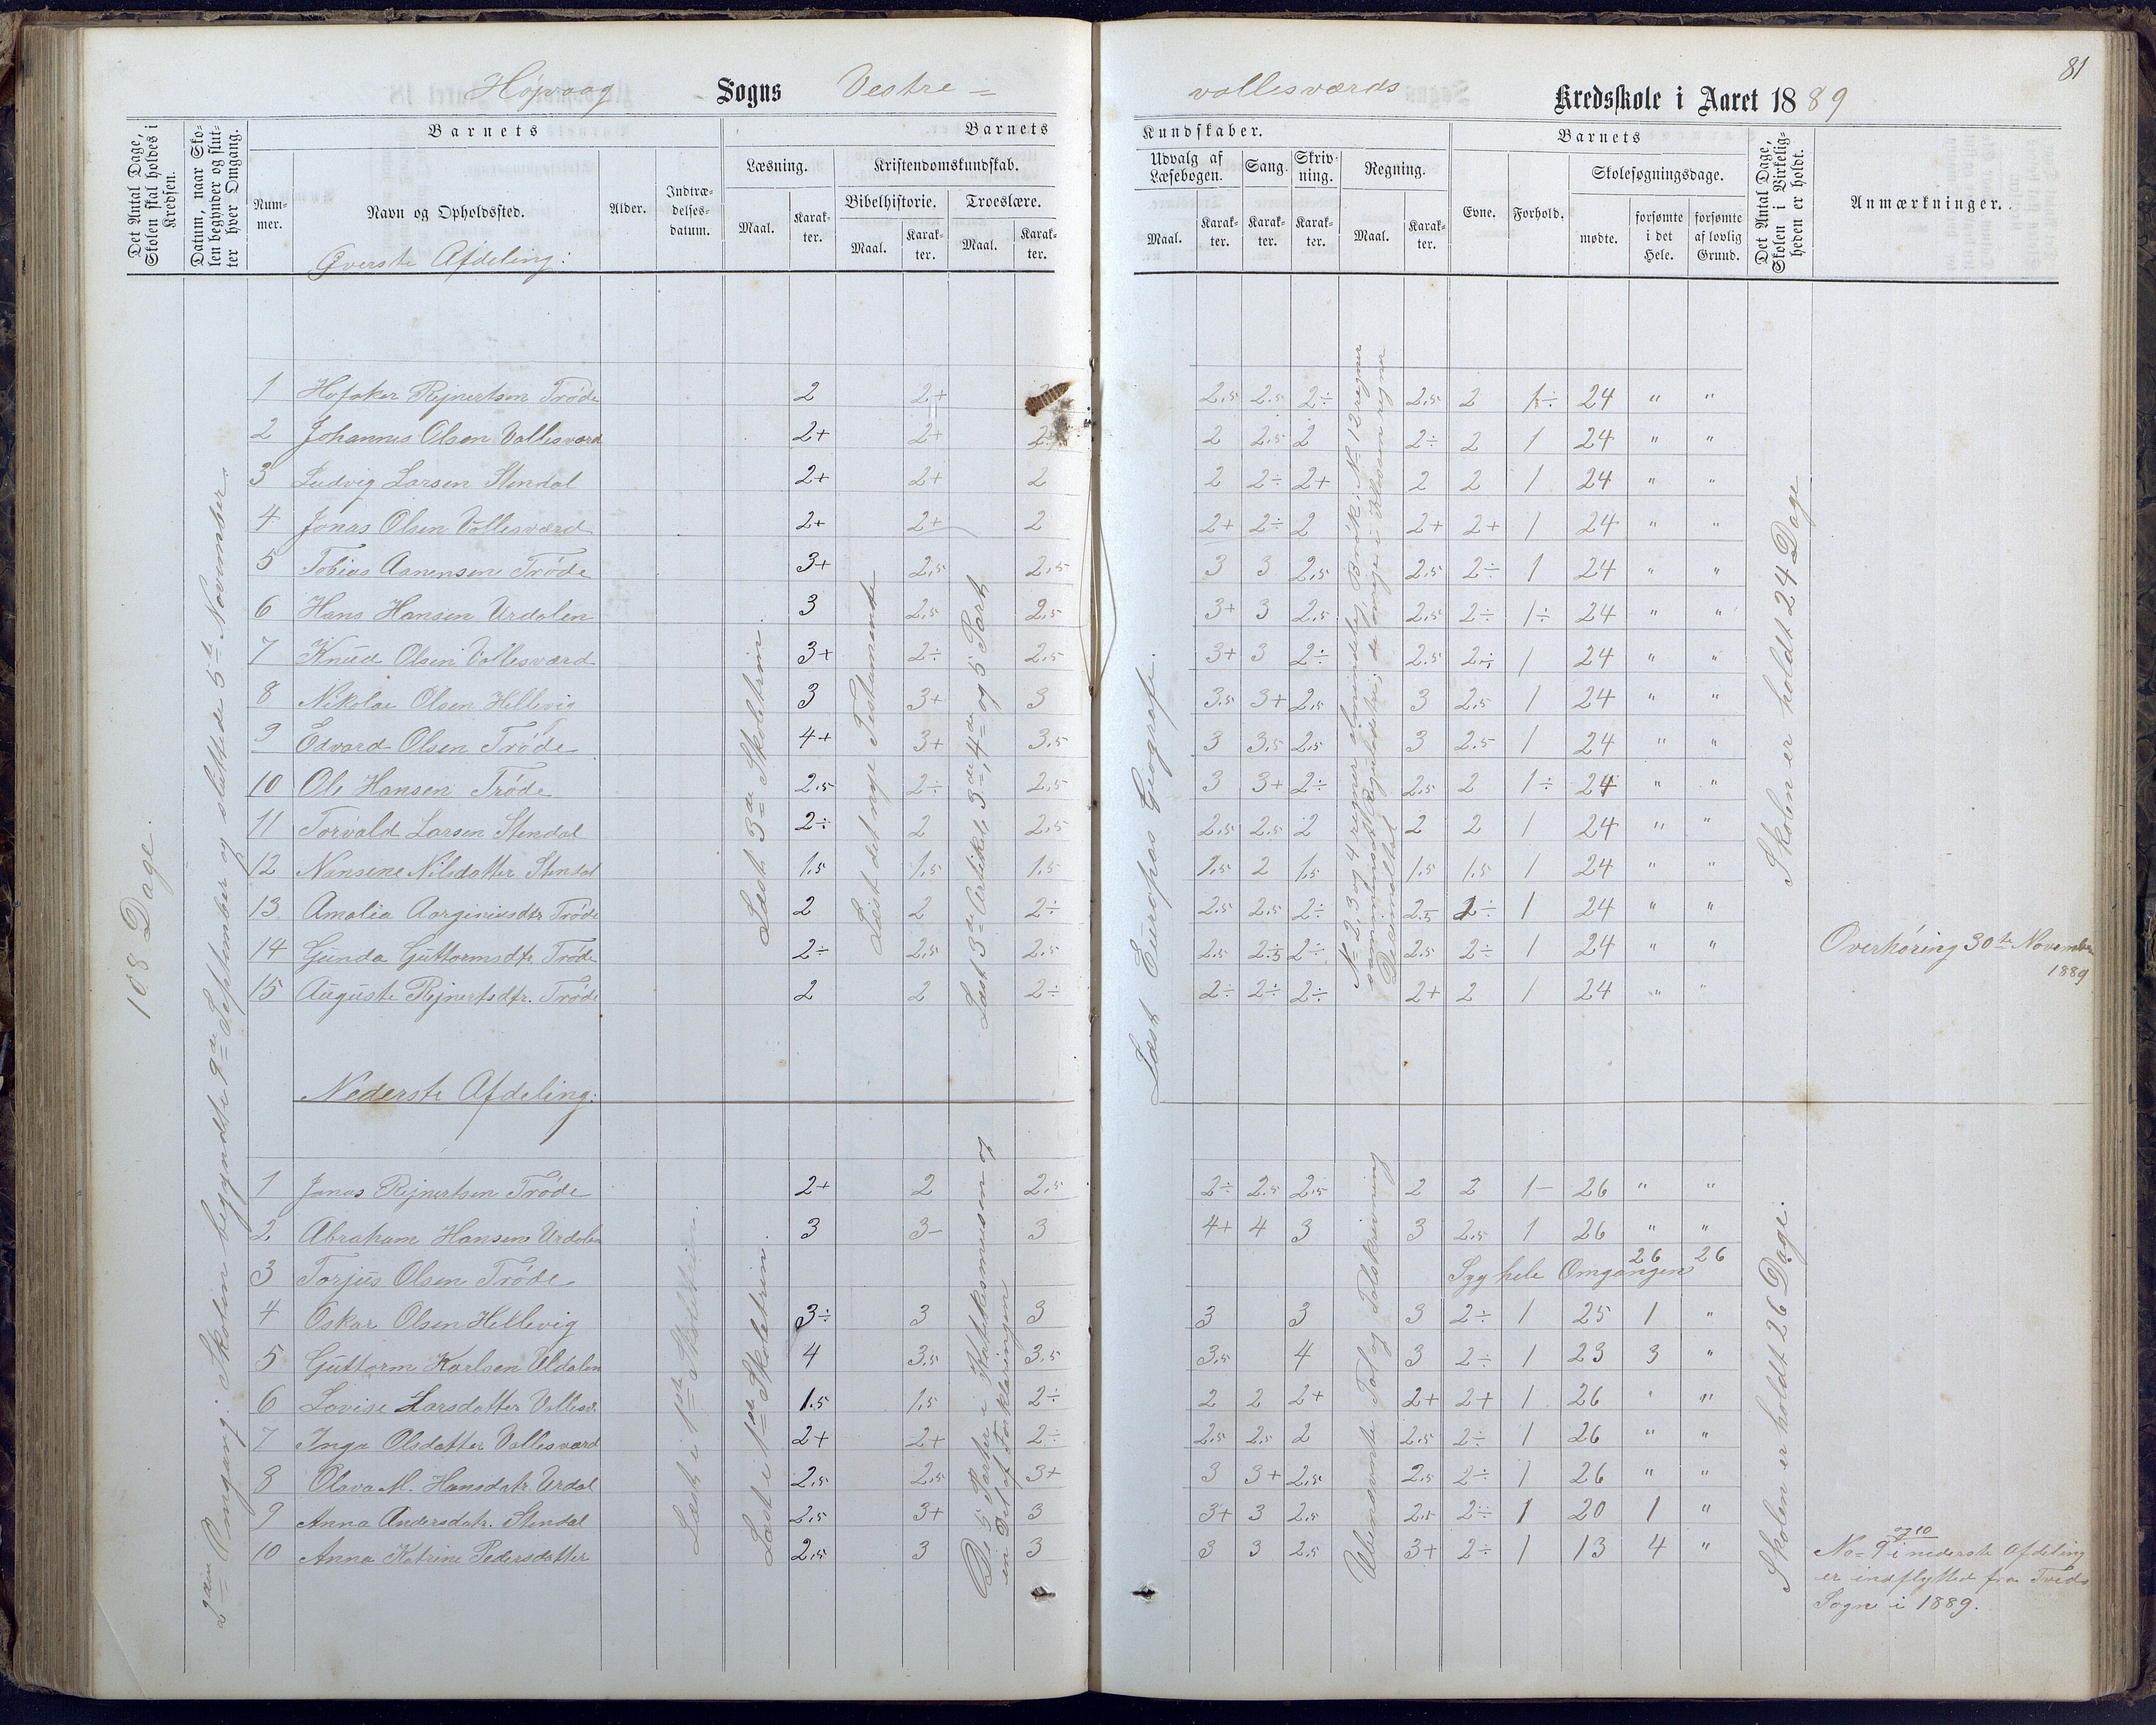 81
Høpvaag Sogns Vestre =
vallesværds Kredsskole i Aaret 1889
Det Antal Dage, Skolen skal holdes i Kredsen.
Datum, naar Skolen begynder og slutter hver Omgang.
Barnets
Nummer.
Navn og Opholdssted.
Alder.
Indtrædelsesdatum.
Barnets
Læsning.
Maal.
Karakter.
Kristendomskundskab.
Bibelhistorie.
Maal.
Karakter.
Troeslære.
Maal.
Karakter.
Kundskaber.
Udvalg af Læsebogen.
Maal.
Karakter.
Sang.
Karakter.
Skrivning.
Karakter.
Regning.
Maal.
Karakter.
Barnets
Evne.
Forhold.
Skolesøgningsdage.
mødte.
forsømte i det Hele.
forsømte af lovlig Grund.
Det Antal Dage, Skolen i Virkeligheden er holdt.
Anmærkninger.
Øverste Afdeling:
108 Dage.
2den Omgang: Skolen begyndte 9de September og sluttede 5te November.
Læst 3die Skoletrin.
Læst det nye Testamente
Læst 3die Artikel, 3die, 4de og 5 Part
Læst Europas Geografi.
Skolen er holdt 24 Dage
1 Hofaker Rejnertsen Trøde 2 2+ 2.5 2.5 2÷ 2.5 2 1÷ 24 " "
2 Johannes Olsen Vallesværd 2+ 2+ 2+ 2 2.5 2 2÷ 2 1 24 " "
3 Ludvig Larsen Stendal 2+ 2+ 2 2 2÷ 2+ 2 2 1 24 " "
4 Jonas Olsen Vallesværd 2+ 2+ 2 2+ 2÷ 2 2+ 2+ 1 24 " "
5 Tobias Aanensen Trøde 3+ 2,5 2,5 3 3 2,5 2.5 2÷ 1 24 " "
6 Hans Hansen Urdalen 3 2,5 2,5 3+ 3 2,5 2.5 2÷ 1÷ 24 " "
7 Knud Olsen Vallesværd 3+ 2÷ 2,5 3+ 3 2÷ 2.5 2÷ 1 24 " "
8 Nikolai Olsen Hellevig 3 3+ 3 3,5 3+ 2,5 3 2.5 1 24 " "
9 Edvard Olsen Trøde 4+ 3+ 3.5 3 3,5 2,5 3 2.5 1 24 " "
10 Ole Hansen Trøde 2,5 2÷ 2,5 3 3+ 2÷ 2.5 2 1÷ 24 " "
11 Torvald Larsen Stendal 2÷ 2 2,5 2,5 2.5 2 2 2 1 24 " "
12 Nansine Nilsdatter Stendal 1,5 1,5 1,5 1,5 2 1,5 1,5 1,5 1 24 " "
13. Amalia Aarginiusdtr Trøde 2 2 2÷ 2.5 2.5 2÷ 2.5 2÷ 1 24 " "
14 Gunda Guttormsdtr. Trøde 2÷ 2,5 2,5 2.5 2.5 2÷ 2.5 2÷ 1 24 " "
Overhøring 30te November 1889
15 Auguste Rejnertsdtr. Trøde 2 2 2÷ 2÷ 2÷ 2÷ 2+ 2 1 24 " "
Nederste Afdeling:
Læst i 1ste Skoletrin.
Læst i 1ste Skoletrin.
De 5 Parter i Katekismusen og en Del af Forklaringen
Ubenævnte Tal og Talskrivning
Skolen er holdt 26 Dage.
1 Jonas Rejnertsen Trøde 2+ 2 2,5 2÷ 2.5 2,5 2 2 1- 26 " "
2 Abraham Hansen Urdalen 3 3- 3 4+ 4 3 3 2,5 1 26 " "
3 Torjus Olsen Trøde Syg hele Omgangen 26 26
4 Oskar Olsen Hellevig 3÷ 3 3 3 3 3 2÷ 1 25 1 "
5 Guttorm Karlsen Urdalen 4 3,5 3,5 3,5 4 3 2÷ 1 23 3 "
6 Lovise Larsdatter Vallesv. 1.5 1,5 2÷ 2 2 2+ 2+ 2+ 1 26 " "
7 Inga Olsdatter Vallesværd 2+ 2+ 2÷ 2.5 2,5 2 2.5 2÷ 1 26 " "
8 Olava M. Hansdatr. Urdal 2,5 2,5 3+ 3 3+ 2,5 2,5 2÷ 1 26 " "
9 Anna Andersdatr. Stendal 2,5 3+ 3 3+ 3 2,5 2,5 2÷ 1 20 1 "
10 Anna Katrine Pedersdatter 2,5 3 3 3 3 2,5 3+ 2÷ 1 13 4 "
No= 9 og 10 i nederste Afdeling
er indflyttet fra Tveds
Sogn i 1889.